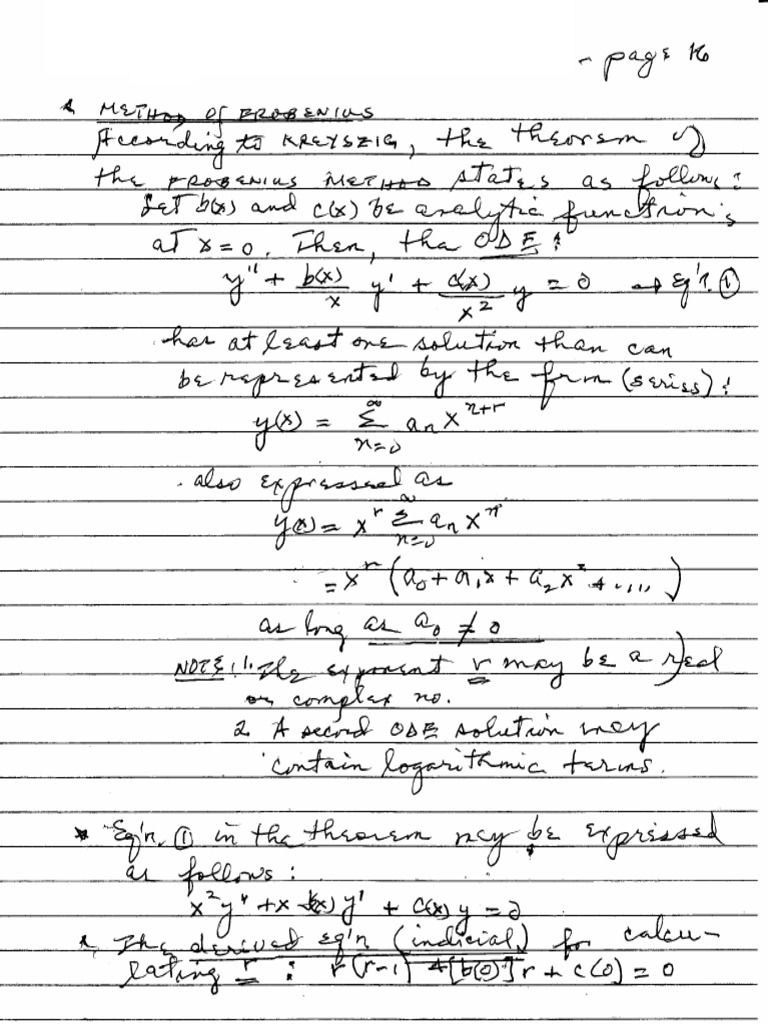 - page 16
* METHOD of FROBENIUS
According to KREYSZIG, the theorem of
the FROBENIUS METHOD states as follows:
Let b(x) and c(x) be analytic functions
at x = 0. Then, the ODE:
y" + b(x)/x y' + c(x)/x² y = 0 → Eq'n. ①
has at least one solution than can
be represented by the frm (series):
y(x) = ∞ Σ n=0 aₙ xⁿ⁺ʳ
. also expressed as
y(x) = xʳ ∞ Σ n=0 aₙ xⁿ
= xʳ (a₀ + a₁x + a₂x² + ....)
as long as a₀ ≠ 0
NOTE: 1. The exponent r may be a real
or complex no.
2. A second ODE solution may
contain logarithmic terms.
* Eq'n. ① in the theorem may be expressed
as follows:
x²y" + x b(x) y' + c(x) y = 0
* The derived eq'n (indicial) for calcu-
lating r : r(r-1) + [b(0)]r + c(0) = 0